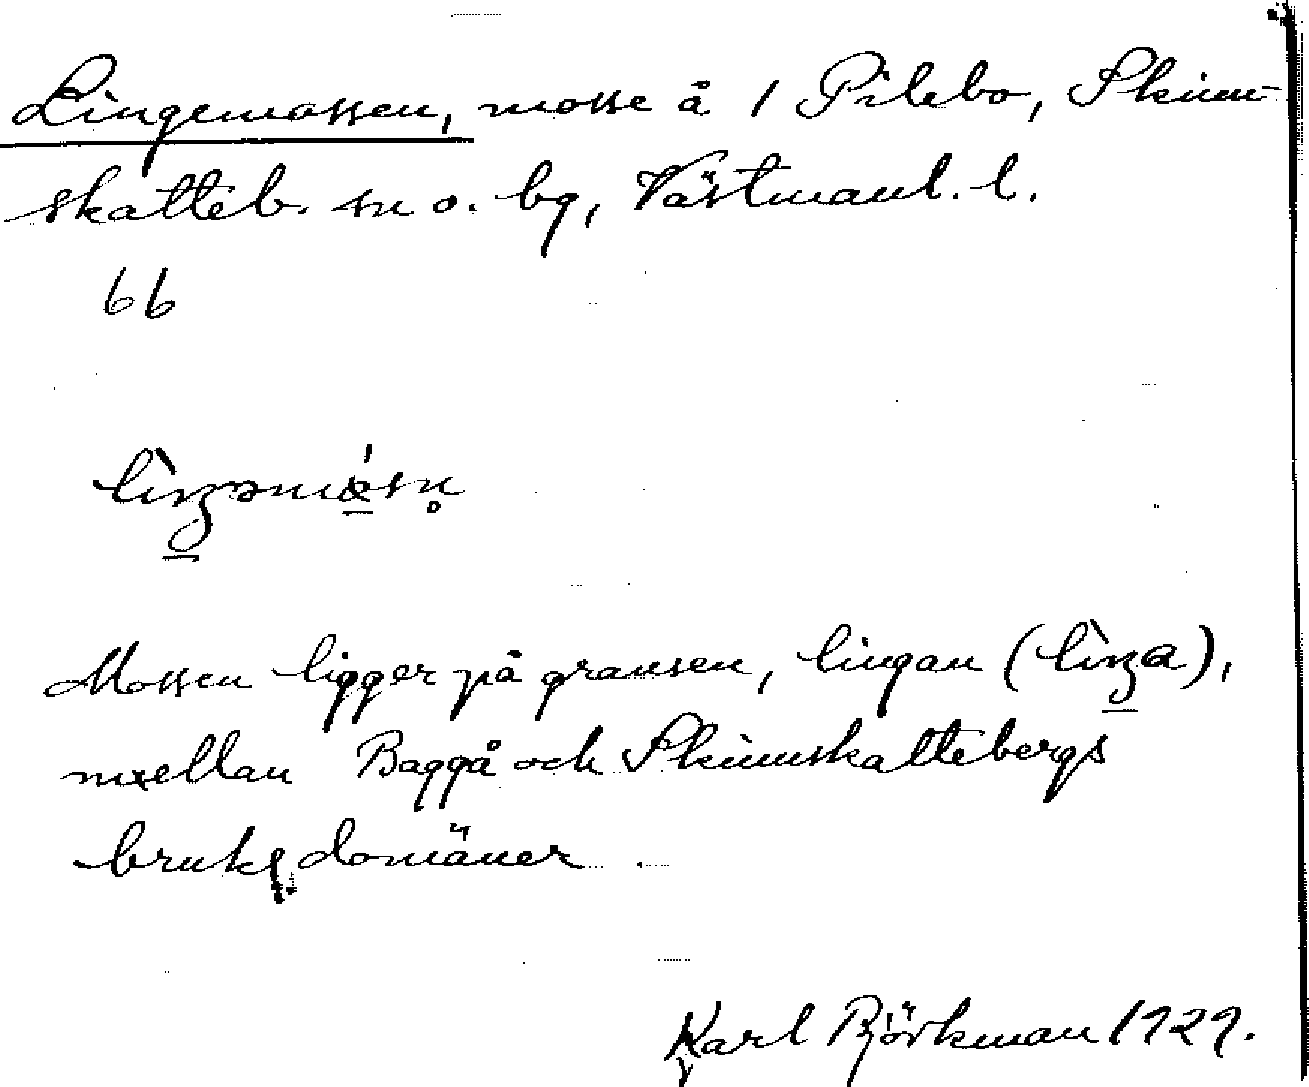 Lingemossen, mosse å 1 Pilebo, Skinn-
skatteb. sn o. bg, Västmanl. l.
66
Mossen ligger på gränsen, lingan (lìŋa),
mellan Baggå och Skinnskattebergs
bruks domäner.
Karl Björkman 1929.